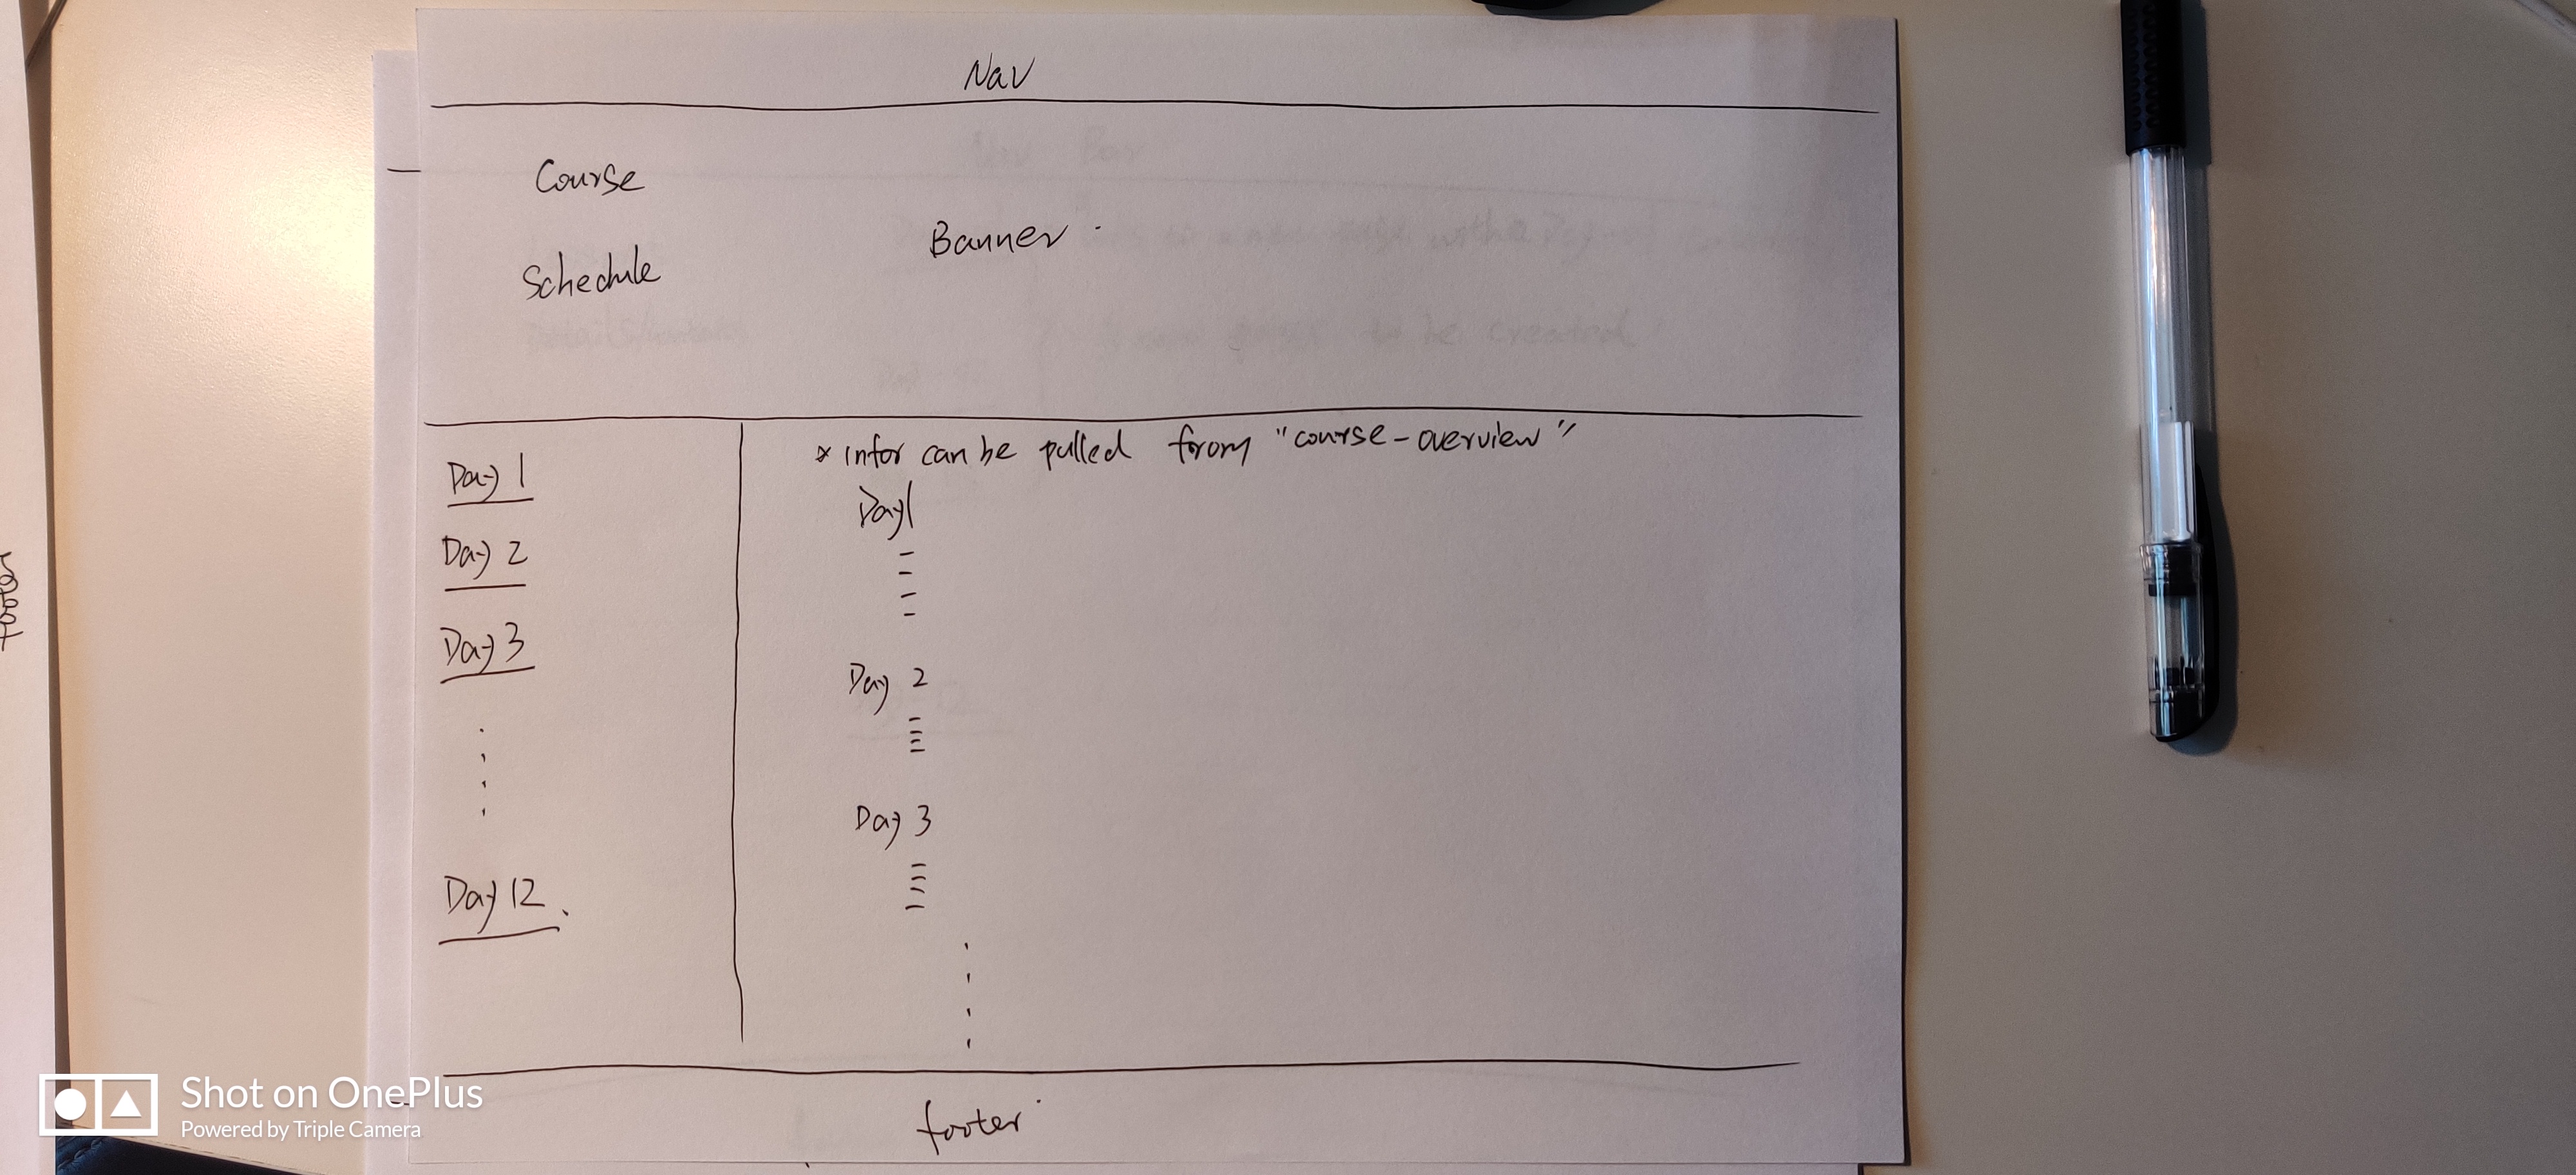 Nav
Course
Schedule
Banner
Day 1
Day 2
Day 3
Day 12.
* infor can be pulled from "course-overview"
Day 1
Day 2
Day 3
footer
footer
Shot on OnePlus
Powered by Triple Camera